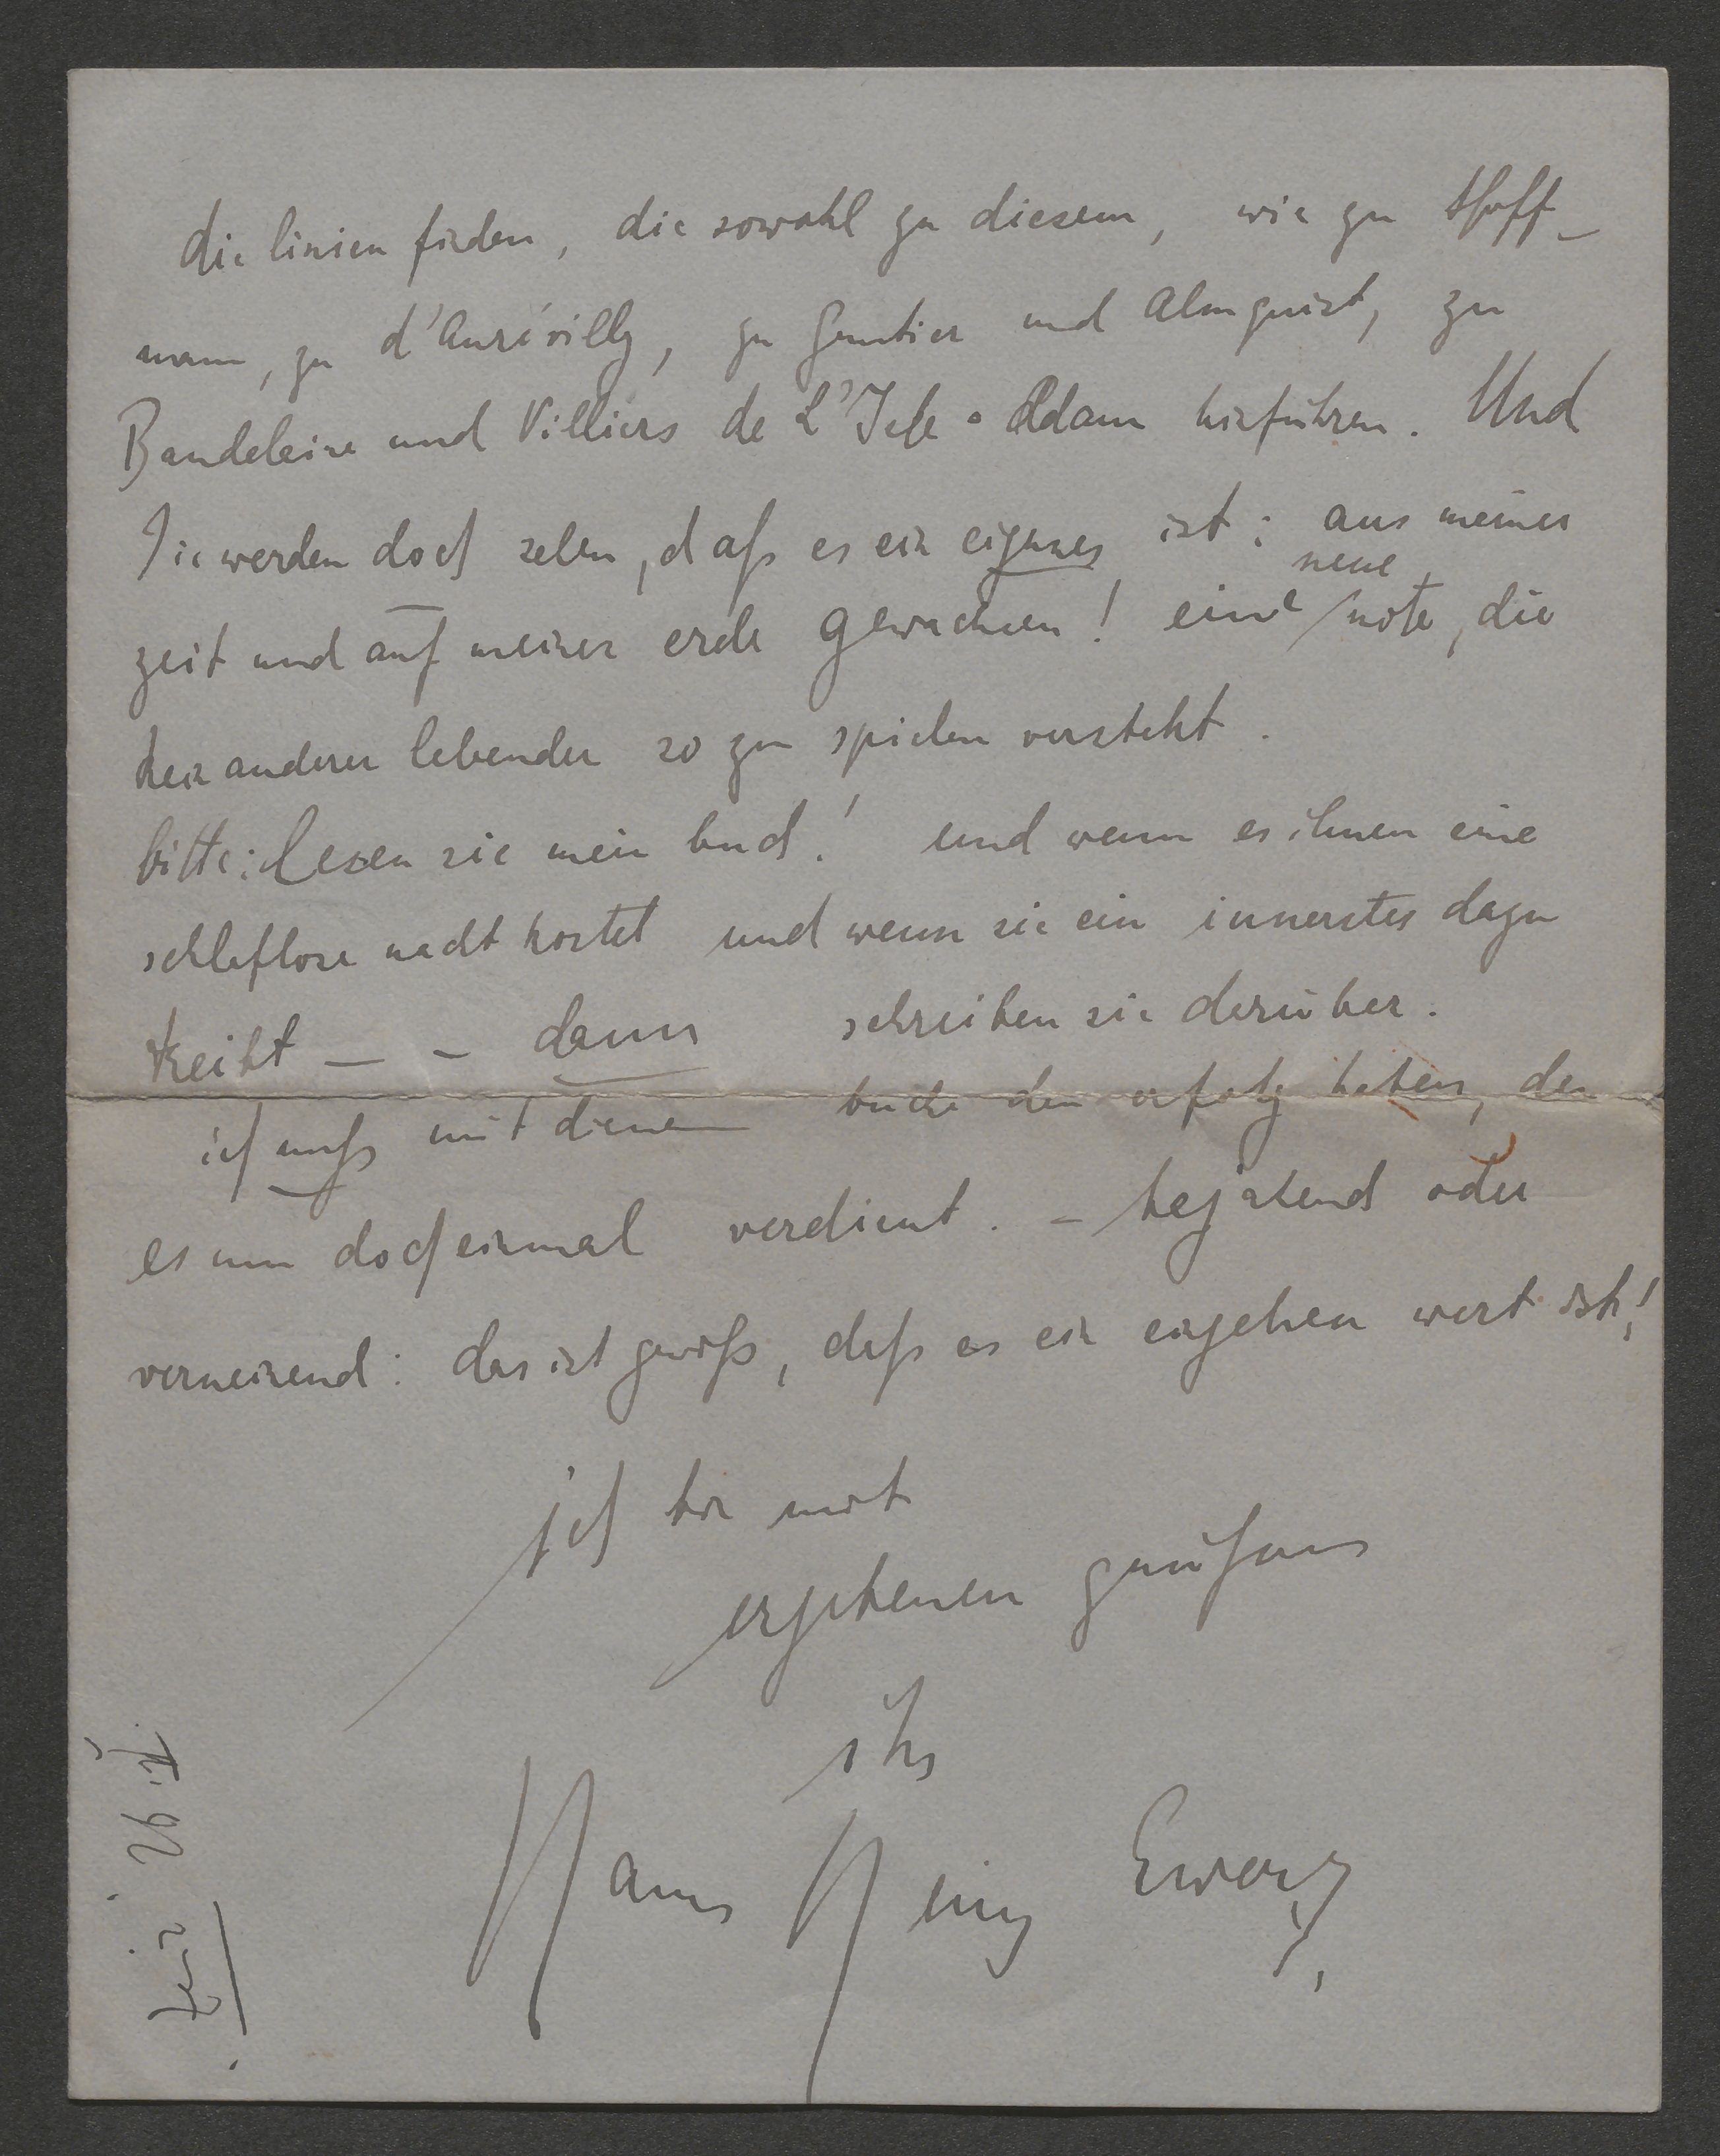 die linien finden, die sowohl zu diesem, wie zu Hoff-
mann, zu d'Aurévilly, zu Gautier und Almquist, zu
Baudelaire und Villiers de L'Isle-Adam hinführen. Und
Sie werden doch sehen, daß es ein eigenes ist: aus meiner
zeit und auf meiner erde gewachsen! eine neue note, die
kein anderer lebender so zu spielen versteht.
bitte: lesen sie mein buch! und wenn es ihnen eine
schlaflose nacht kostet und wenn sie ein innerstes dazu
treibt — – dann schreiben sie darüber.
ich muß mit diesem buche den erfolg haben, den
es nun doch einmal verdient. – bejahend oder
verneinend: das ist gewiß, daß es ein eingehen wert ist!
ich bin mit
ergebenen grüßen
ihr
Hanns Heinz Ewers